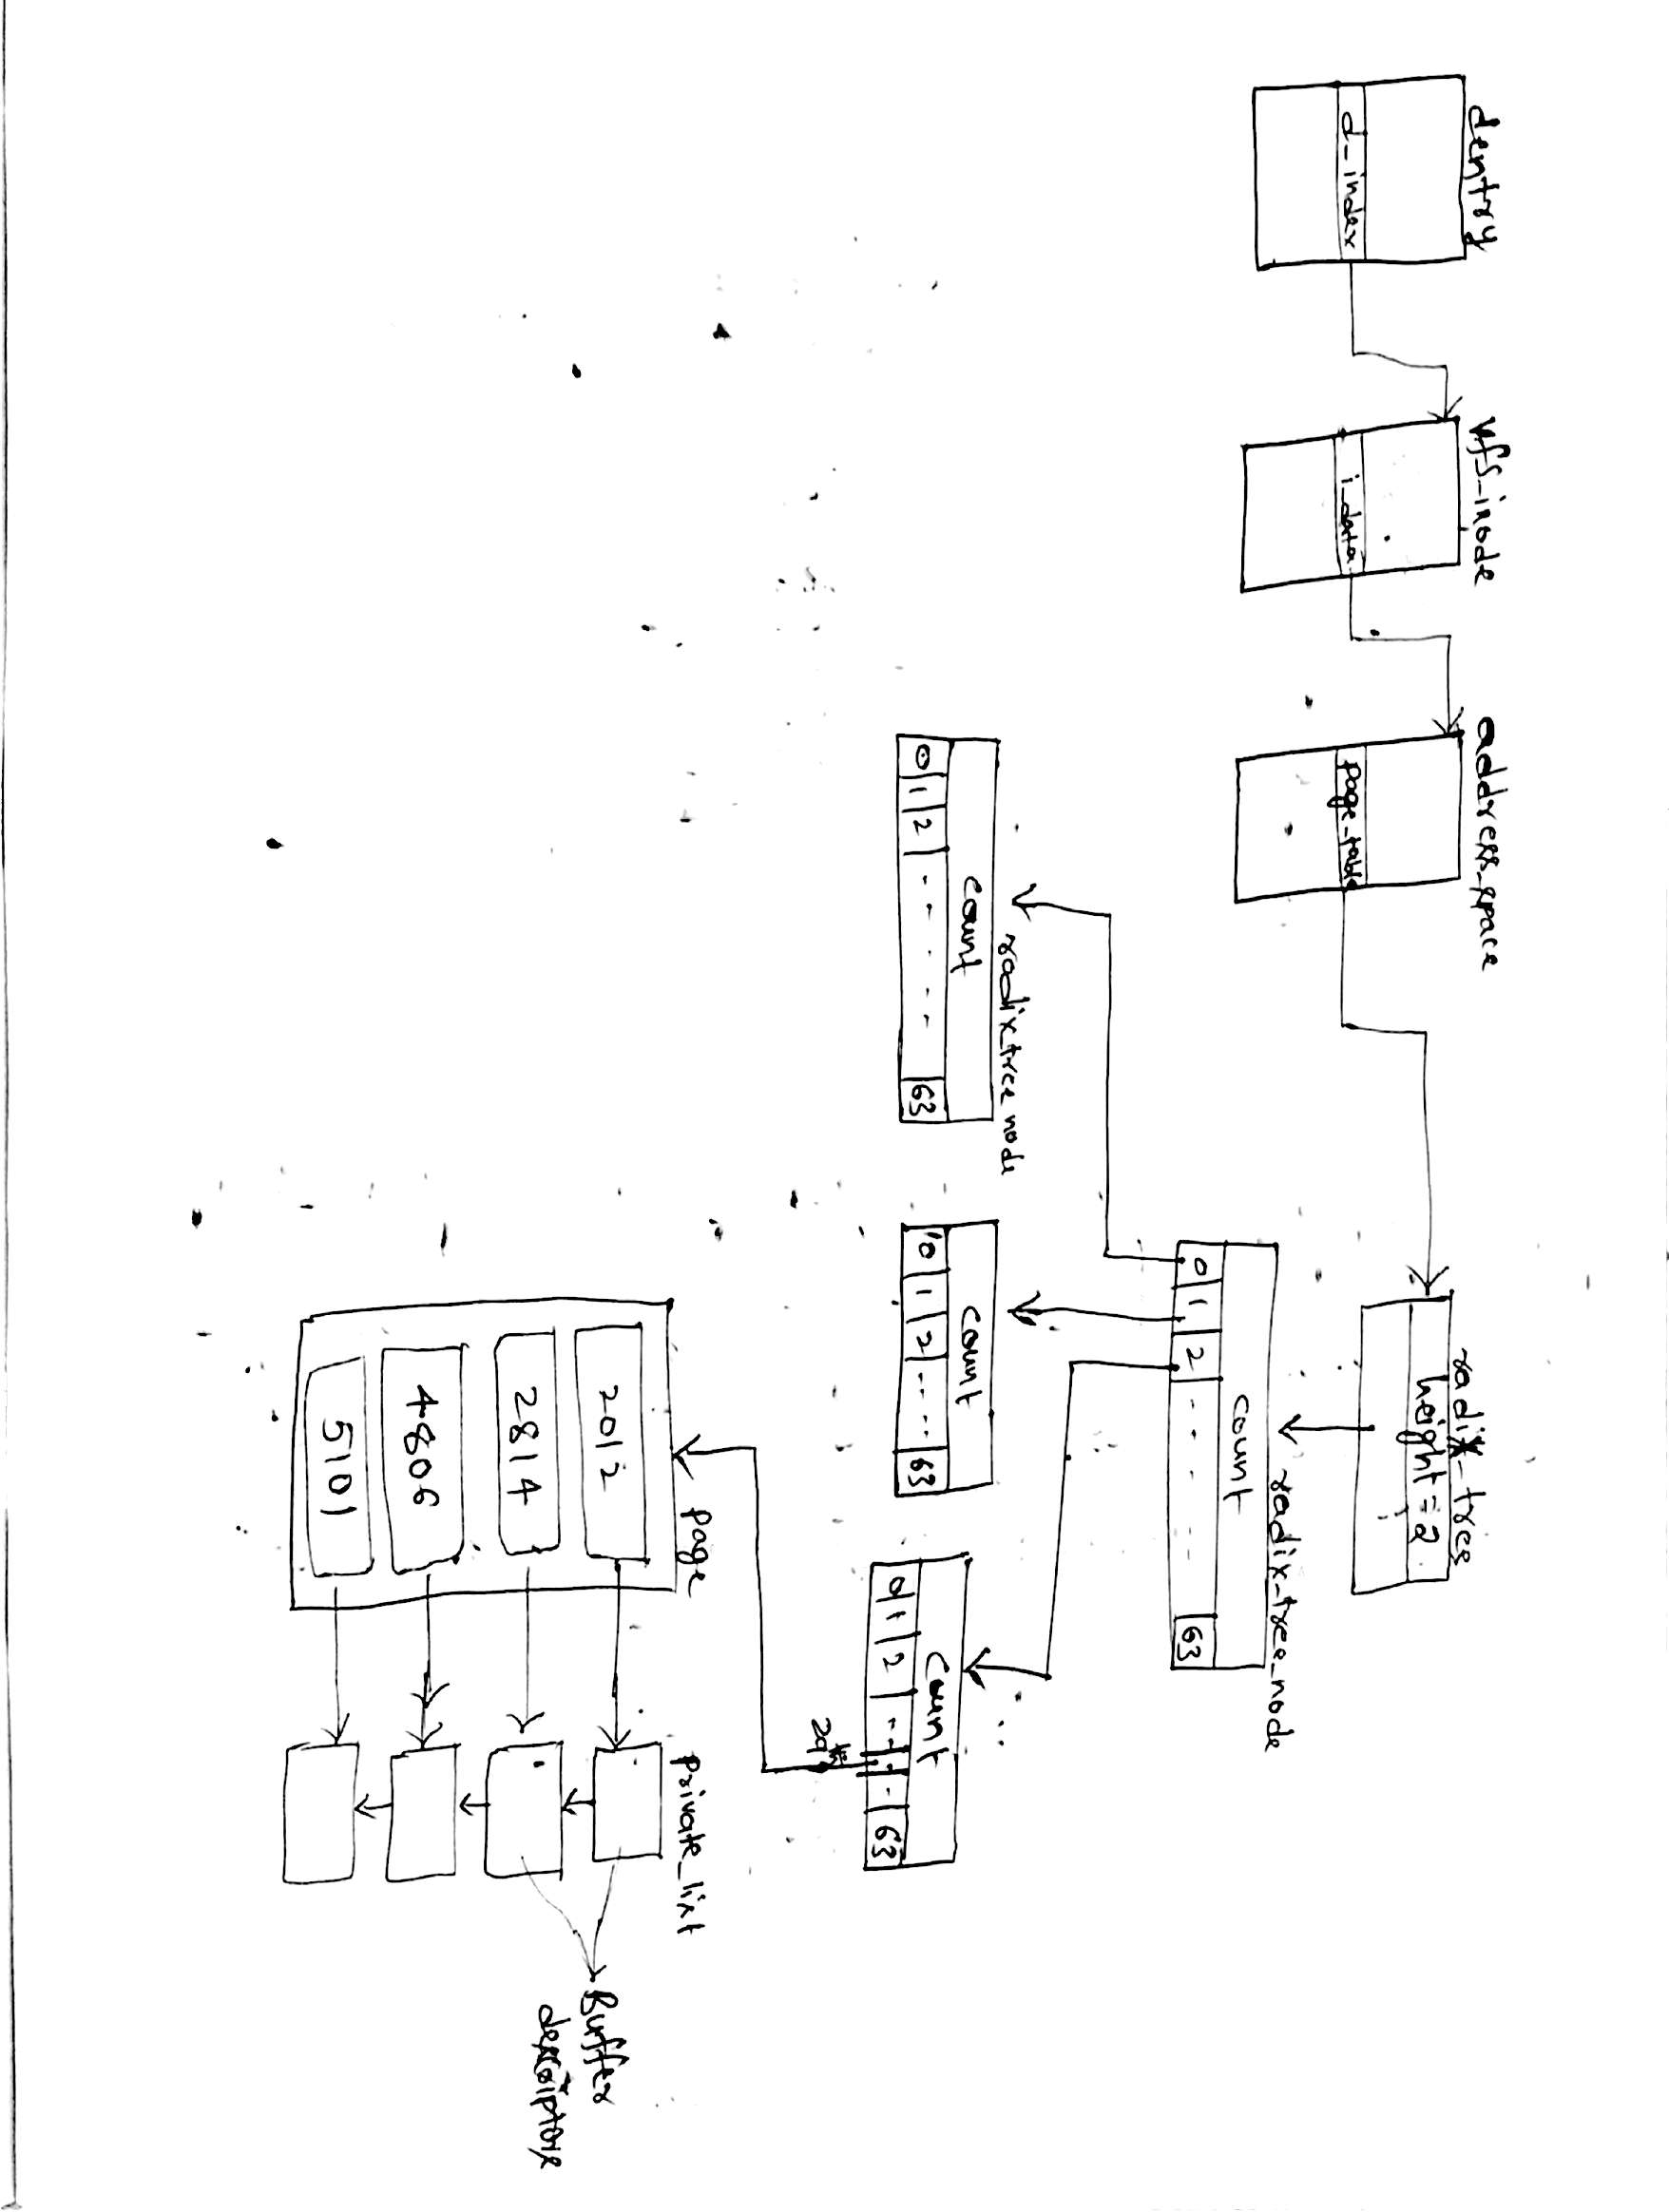 dentry
d_index
vfs_inode
i_data
address_space
page_table
radix_tree
height = 2
radix_tree_node
count
0 1 2 - - - - - 63
radix tree node
count
0 1 2 - - - - - 63
count
0 1 2 - - - - 63
count
0 1 2 - - - - 63
29th
page
2012
2814
4806
5101
private_list
Buffer
descriptors